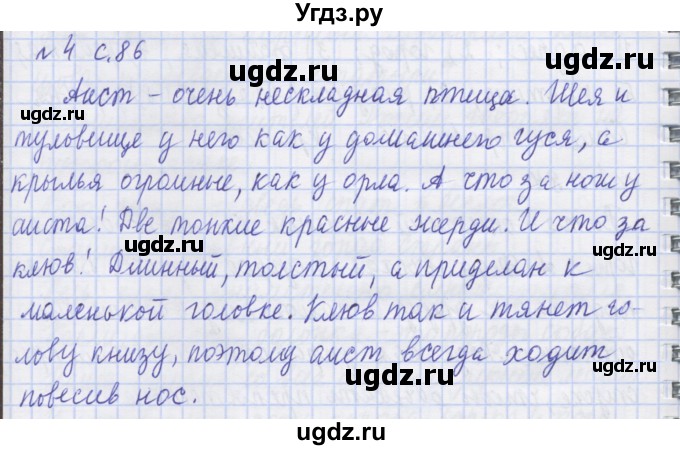 Угдз.ру
№ 4 с.86
ugdz.ru
ugdz.ru
Аист – очень нескладная птица. Шея и
туловище у него как у домашнего гуся, а
ugdz.ru
крылья огромные, как у орла. А что за ноги у
аиста! Две тонкие красные жерди. И что за
ugdz.ru
ugdz.ru
клюв! Длинный, толстый, а приделан к
маленькой головке. Клюв так и тянет го-
ugdz.ru
лову книзу, поэтому аист всегда ходит
ugdz.ru
ugdz.ru
повесив нос.
ugdz.ru